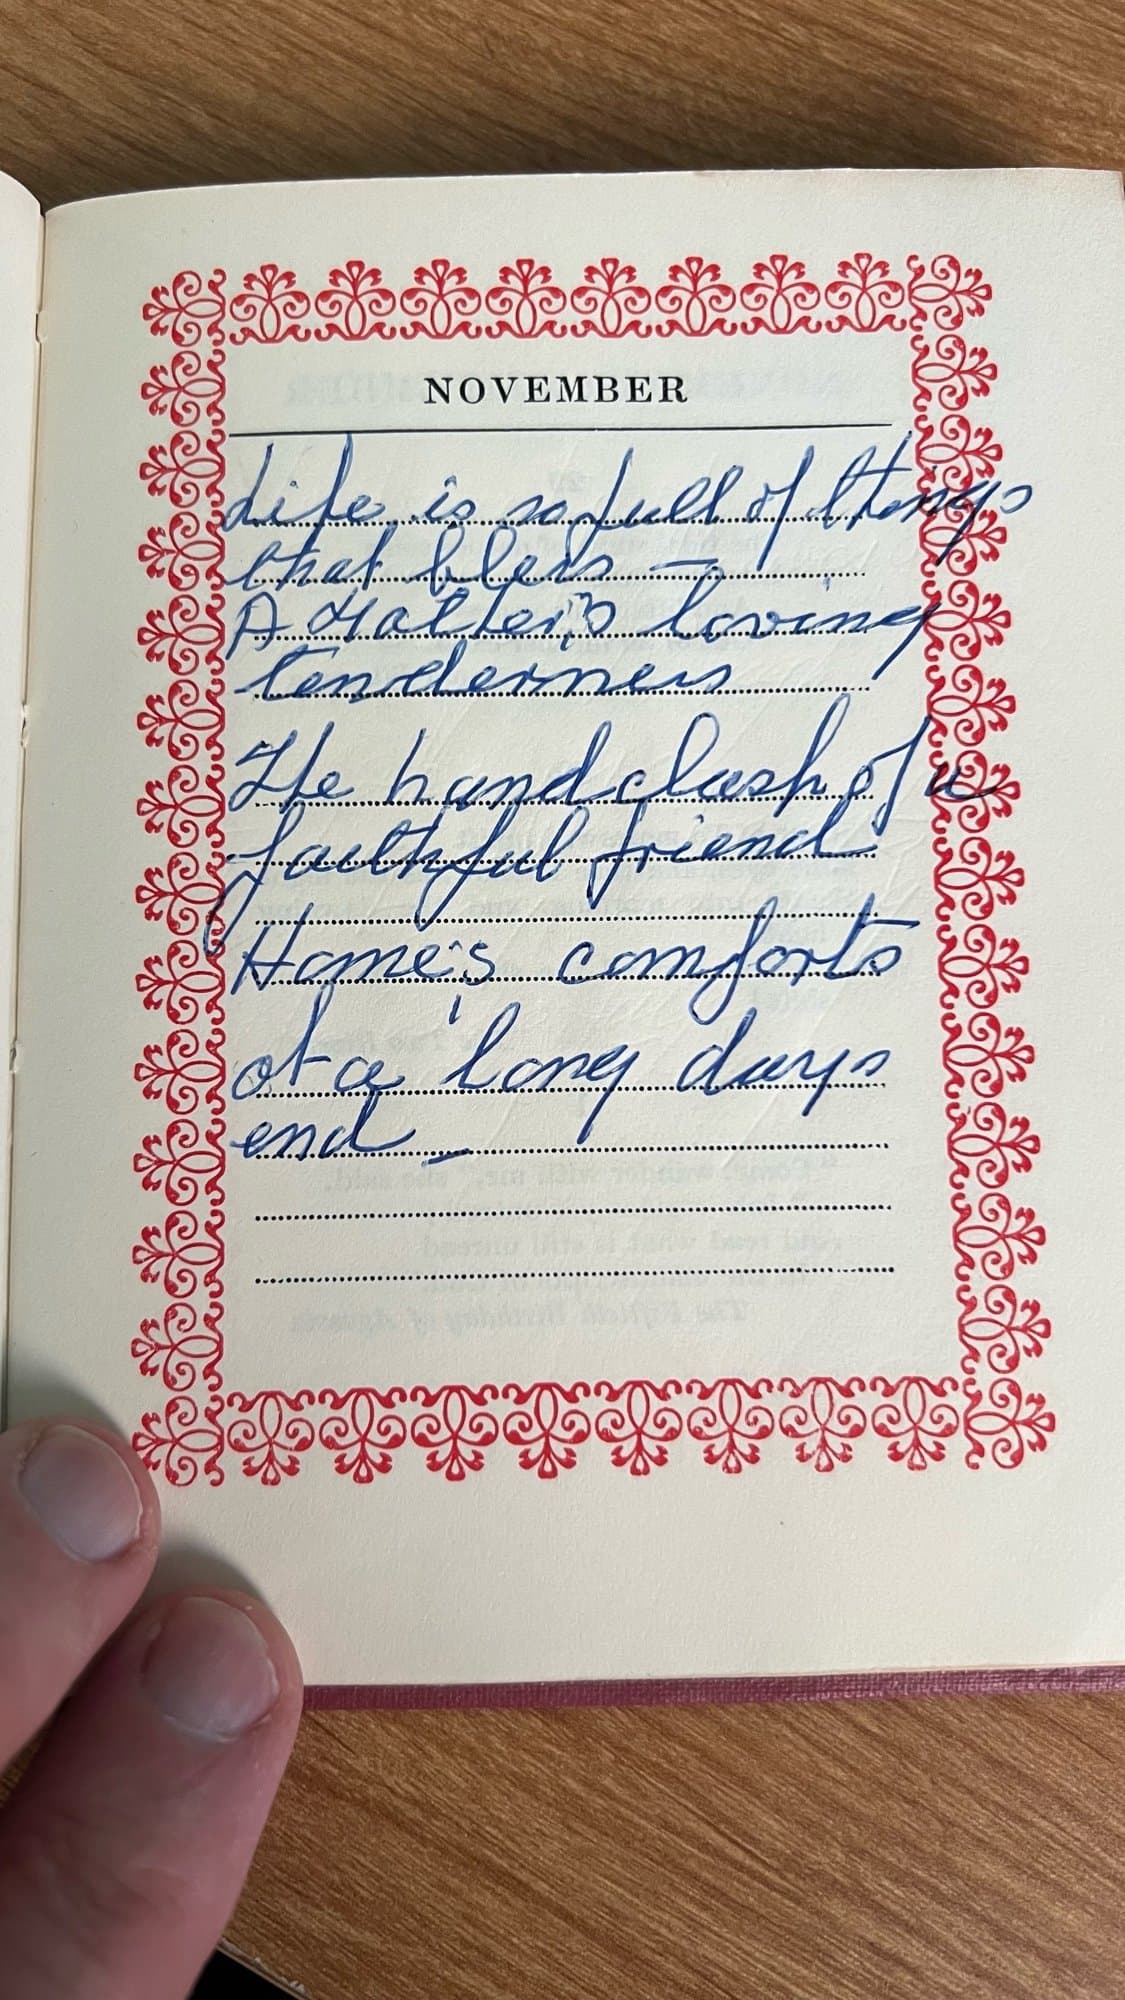 NOVEMBER
Life is so full of things
that bless —
A Father's loving
tenderness
The hand clash of a
faithful friend
Home's comforts
at a long days
end —